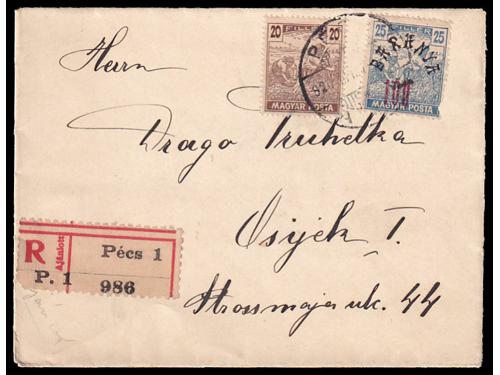 Herrn
20 FILLÉR 20
MAGYAR POSTA
25 FILLÉR 25
BARANYA
MAGYAR POSTA
Drago Truhelka
Osijek I.
Strossmajer ulc. 44
R Ajánlott
Pécs 1
P. 1
986